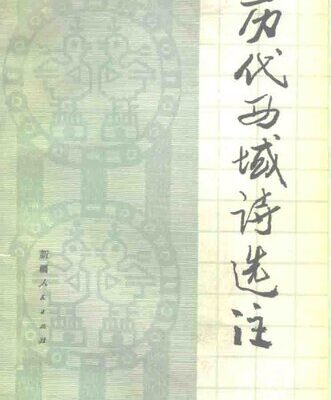 历代西域诗选注
新疆人民出版社